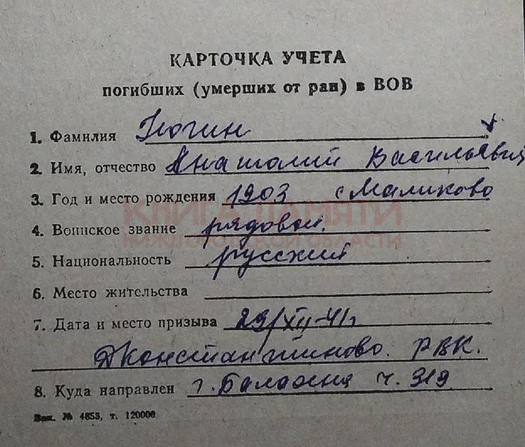 КАРТОЧКА УЧЕТА
погибших (умерших от ран) в ВОВ
1. Фамилия Тюгин
2. Имя, отчество Анатолий Васильевич
3. Год и место рождения 1903 с Маликово
КНИГА ПАМЯТИ
4. Воинское звание рядовой
НИЖЕГОРОДСКОЙ ОБЛАСТИ
5. Национальность русский
6. Место жительства
7. Дата и место призыва 29/XII-41г
Дконстантиново. РВК.
8. Куда направлен г. Балахна ч. 319
Зак. № 4853, т. 120000